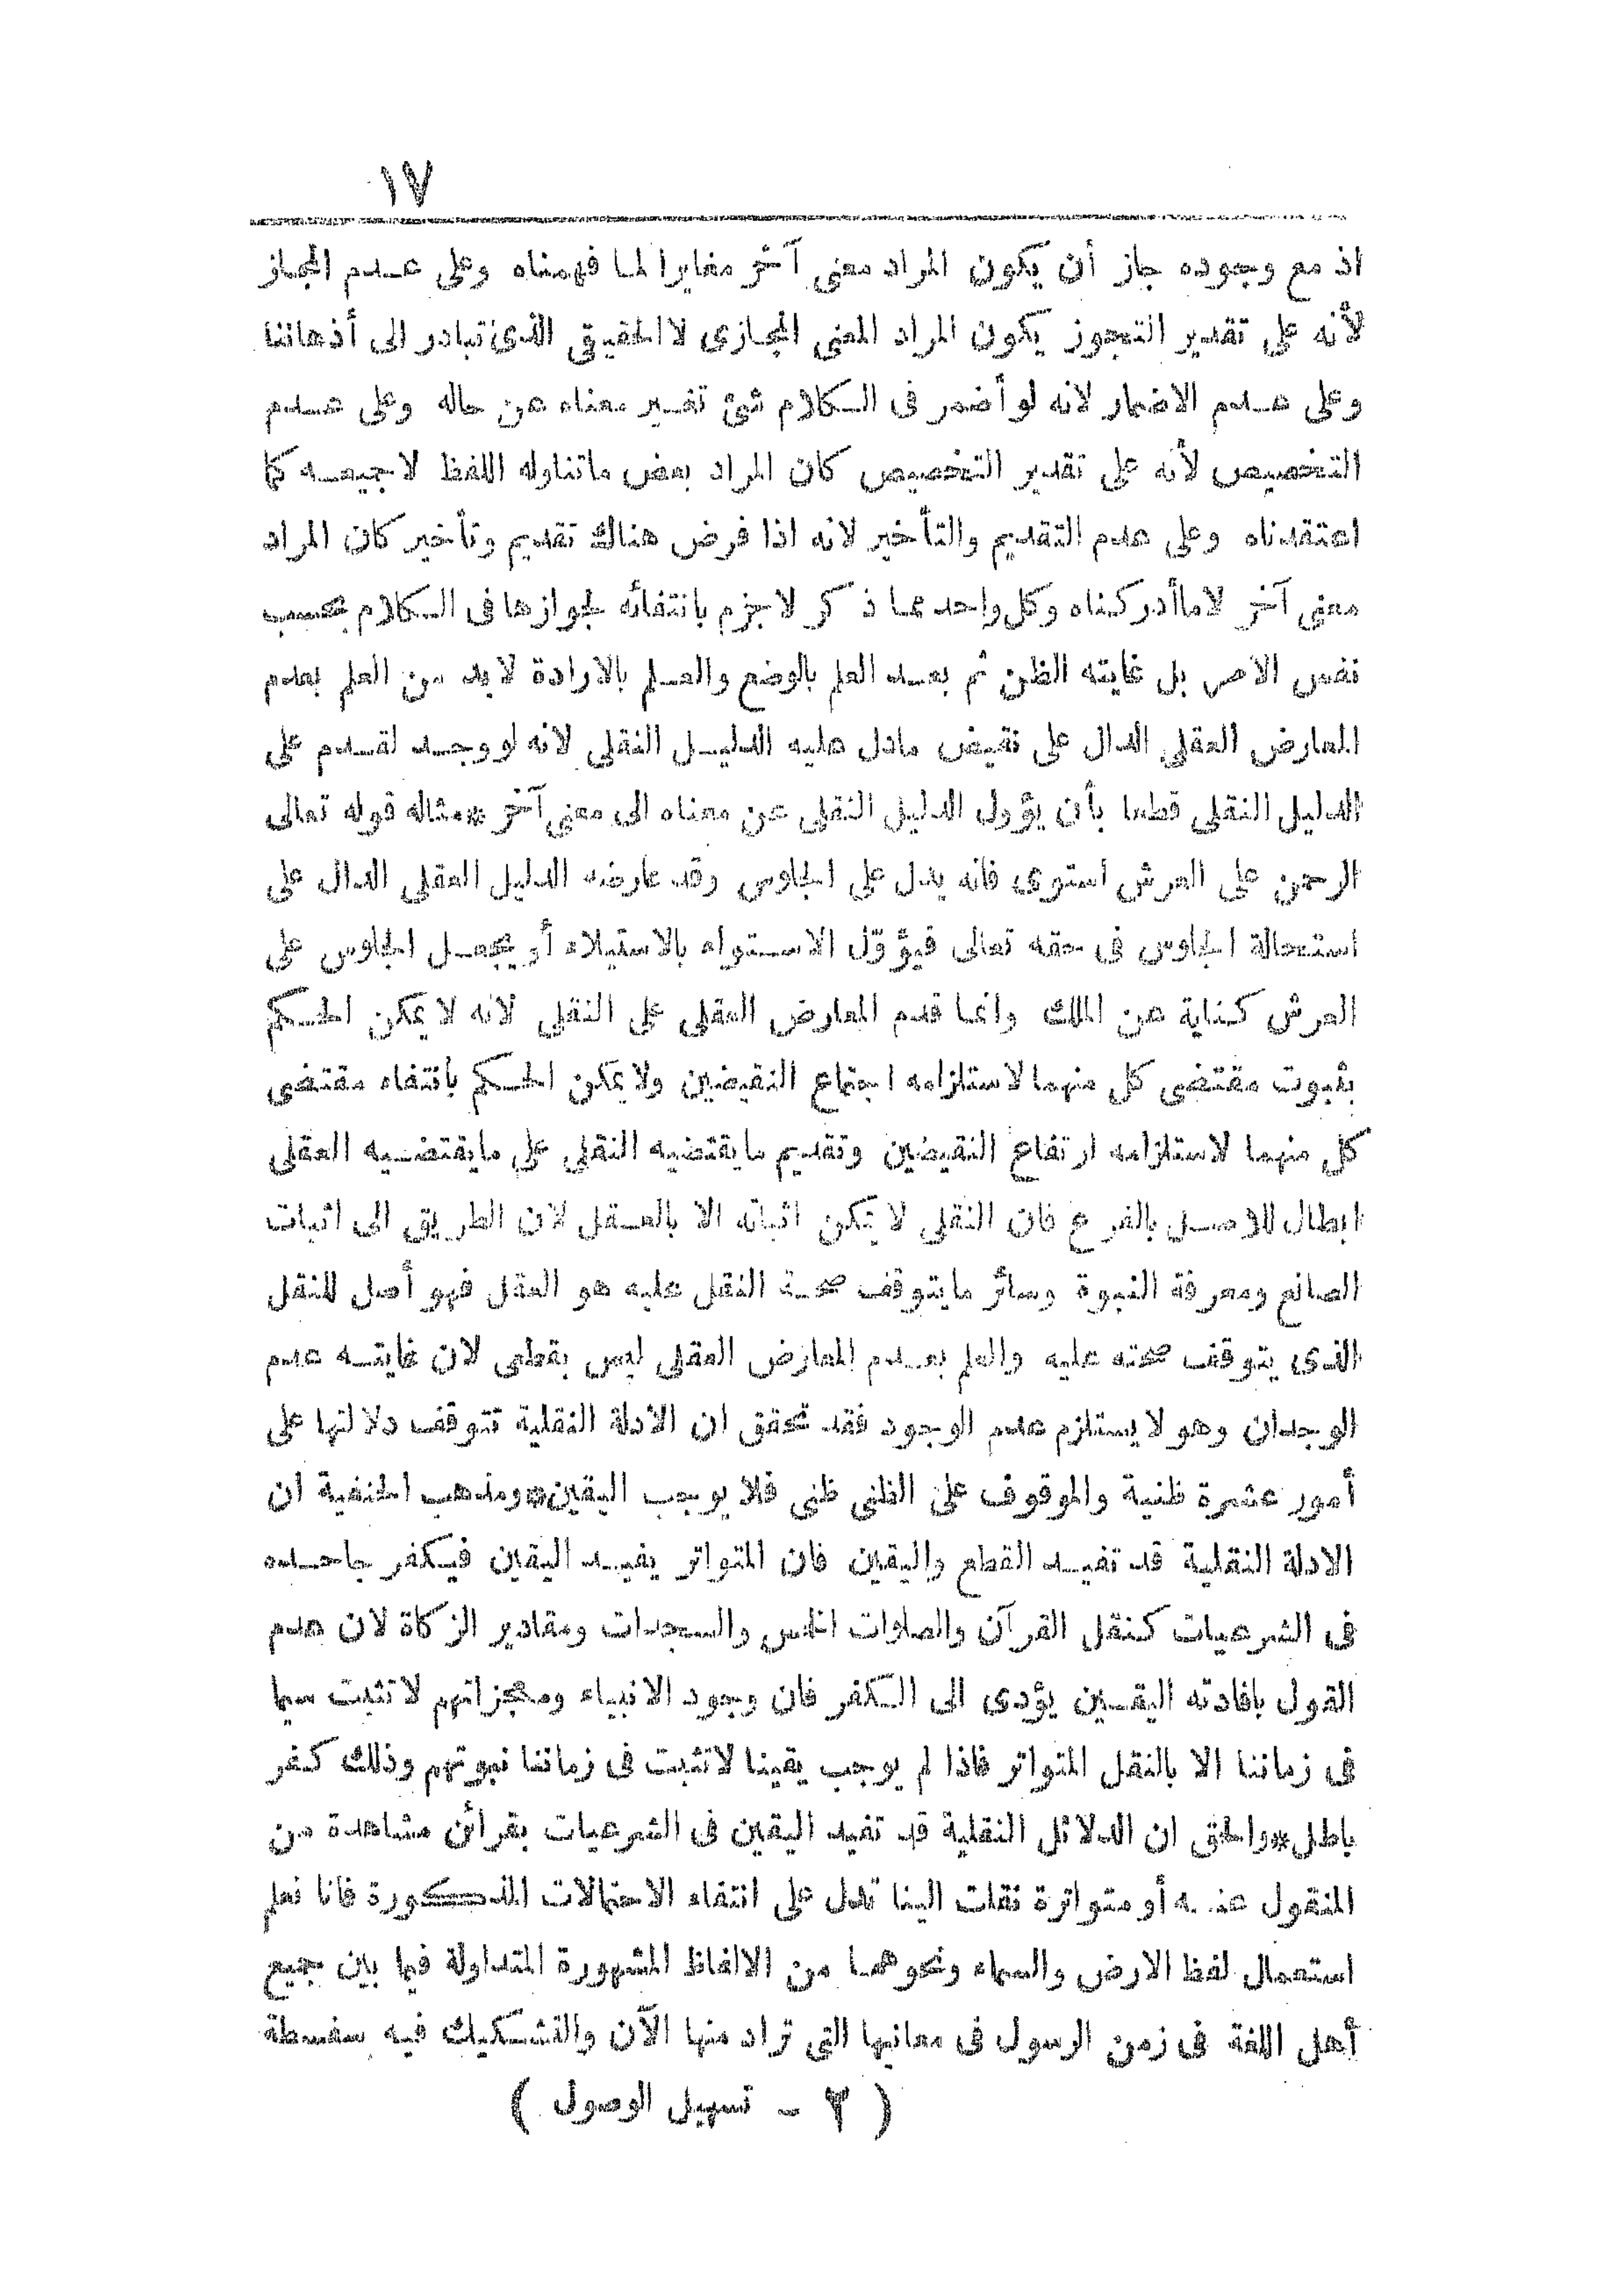 ١٧
اذ مع وجوده جاز أن يكون المراد معنى آخر مغايرا لما فهمناه وعلى عدم المجاز
لأنه على تقدير التجوز يكون المراد المعنى المجازى لا الحقيقي الذى تبادر الى أذهاننا
وعلى عدم الاضمار لانه لو أضمر فى الكلام شئ تغير معناه عن حاله وعلى عدم
التخصيص لأنه على تقدير التخصيص كان المراد بعض ماتناوله اللفظ لاجميعه كما
اعتقدناه وعلى عدم التقديم والتأخير لانه اذا فرض هناك تقديم وتأخير كان المراد
معنى آخر لاماأدركناه وكل واحد مما ذكر لاجزم بانتفائه لجوازها فى الكلام بحسب
نفس الامر بل غايته الظن ثم بعد العلم بالوضع والعلم بالارادة لابد من العلم بعدم
المعارض العقلى الدال على نقيض مادل عليه الدليل النقلى لانه لو وجد لقدم على
الدليل النقلى قطعا بأن يؤول الدليل النقلى عن معناه الى معنى آخر *مثاله قوله تعالى
الرحمن على العرش استوى فانه يدل على الجلوس وقد عارضه الدليل العقلى الدال على
استحالة الجلوس فى حقه تعالى فيؤوّل الاستواء بالاستيلاء أو يجعل الجلوس على
العرش كناية عن الملك وانما قدم المعارض العقلى على النقلى لانه لا يمكن الحكم
بثبوت مقتضى كل منهما لاستلزامه اجتماع النقيضين ولا يمكن الحكم بانتفاء مقتضى
كل منهما لاستلزامه ارتفاع النقيضين وتقديم مايقتضيه النقلى على مايقتضيه العقلى
ابطال للاصل بالفرع فان النقلى لا يمكن اثباته الا بالعقل لان الطريق الى اثبات
الصانع ومعرفة النبوة وسائر مايتوقف صحة النقل عليه هو العقل فهو أصل للنقل
الذى يتوقف صحته عليه والعلم بعدم المعارض العقلى ليس بقطعى لان غايته عدم
الوجدان وهو لا يستلزم عدم الوجود فقد تحقق ان الادلة النقلية تتوقف دلالتها على
أمور عشرة ظنية والموقوف على الظنى ظنى فلا يوجب اليقين*ومذهب الحنفية ان
الادلة النقلية قد تفيد القطع واليقين فان المتواتر يفيد اليقين فيكفر جاحده
فى الشرعيات كنقل القرآن والصلوات الخمس والسجدات ومقادير الزكاة لان عدم
القول بافادته اليقين يؤدى الى الكفر فان وجود الانبياء ومعجزاتهم لاتثبت سيما
فى زماننا الا بالنقل المتواتر فاذا لم يوجب يقينا لاتثبت فى زماننا نبوتهم وذلك كفر
باطل*والحق ان الدلائل النقلية قد تفيد اليقين فى الشرعيات بقرائن مشاهدة من
المنقول عنه أو متواترة نقلت الينا تدل على انتفاء الاحتمالات المذكورة فانا نعلم
استعمال لفظ الارض والسماء ونحوهما من الالفاظ المشهورة المتداولة فيما بين جميع
أهل اللغة فى زمن الرسول فى معانيها التى تراد منها الآن والتشكيك فيه سفسطة
( ٢ - تسهيل الوصول )